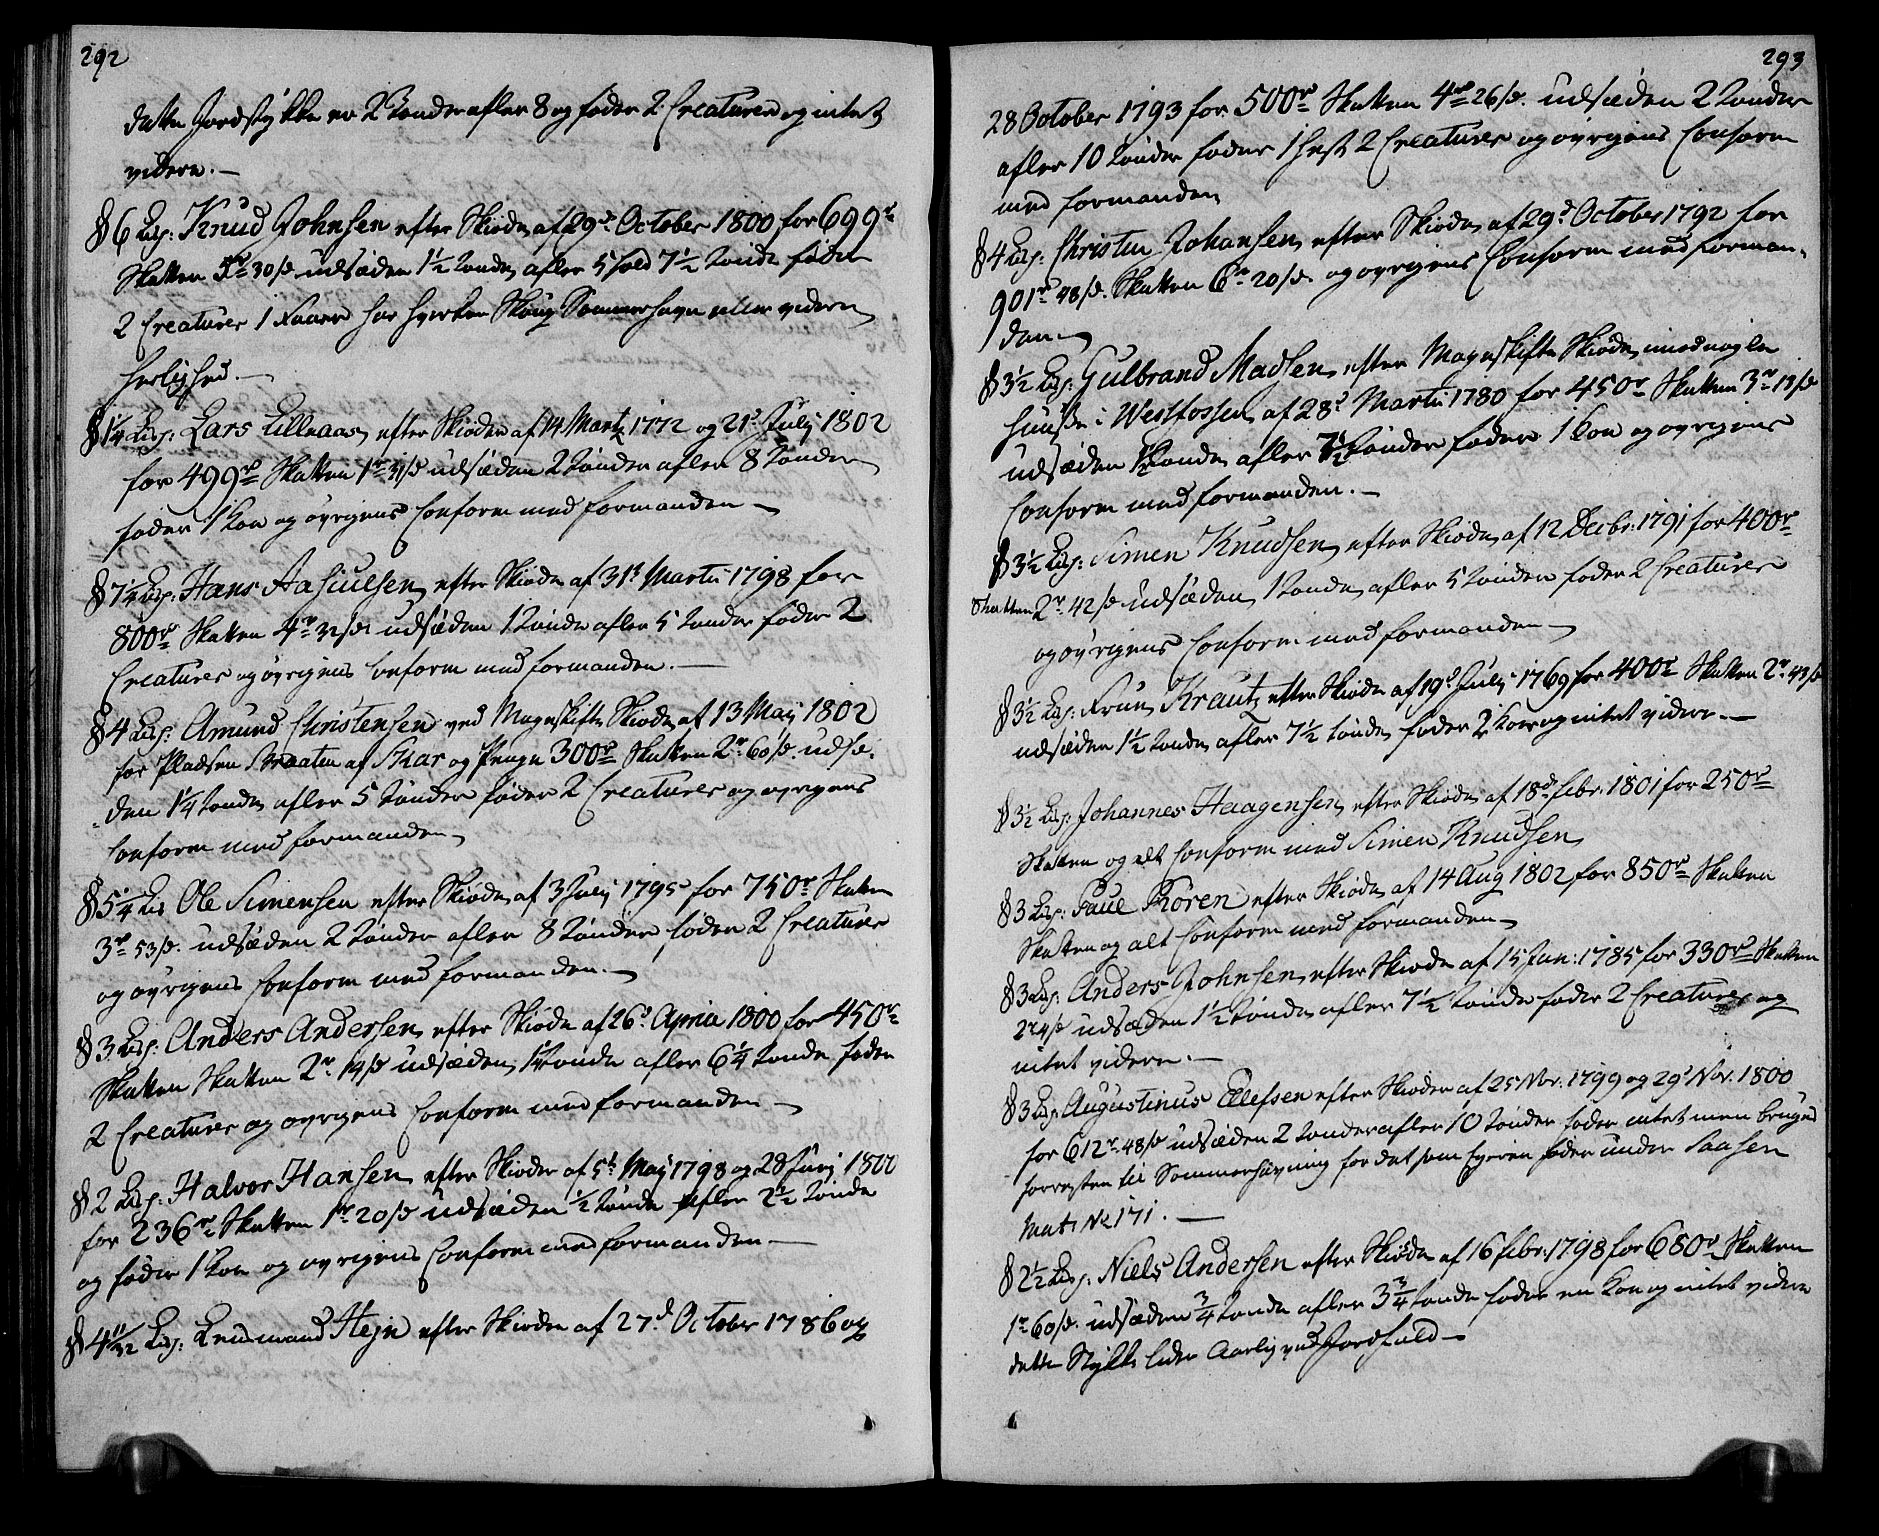 292
dette Jordstykke er 2 Tønder afler 8 og føder 2 Creaturer og intet
videre.—
§ 6 Lisp: Knud Johnsen efter Skiøde af 29d October 1800 for 699r
Skatten 3r 30 s. udsæden 1½ Tønde afler 5 fold 7½ Tønde føder
2 Creaturer 1 Faarer har hverken Skoug Sommerhavn eller videre
herlighed.—
§ 1¼ Lisp: Lars Lilleaas efter Skiøder af 14 Marty 1772 og 21d July 1802
for 499r Skatten 1r 31 s udsæden 2 Tønder afler 8 Tønder
føder 1 Koe og øvrigens Conform med formanden —
§ 7¼ Lisp: Hans Aasuelsen efter Skiøde af 31t Marti 1798 for
800r Skatten 4r 32 s udsæden 1 Tønde afler 5 Tønder føder 2
Creaturer og øvrigens Conform med formanden.—
§ 4 Lisp: Amund Christensen ved Mageskifte Skiøde af 13 May 1802
for Pladsen Braaten af Skar og Penge 300r Skatten 2r 60 s. udsæ-
den 1¼ Tønde afler 5 Tønder føder 2 Creaturer og øvrigens
Conform med formanden
§ 5¼ Lis Ole Simensen efter Skiøde af 3 July 1795 for 750r Skatten
3r 53 s. udsæden 2 Tønder afler 8 Tønder føder 2 Creaturer
og øvrigens Conform med formanden.—
§ 3 Lisp: Anders Andersen efter Skiøde af 26d April 1800 for 450r
Skatten Skatten 2r 14 s udsæden 1¼ Tønde afler 6¼ Tønde føder
2 Creaturer og øvrigens Conform med formanden —
§ 2 Lisp: Halvor Hansen efter Skiøder af 5t May 1798 og 28 Juny 1800
for 236r Skatten 1r 20 s udsæden ½ Tønde afler 2½ Tønde
og føder 1 Koe og øvrigens Conform med formanden —
§ 4 11/32 Lisp: Lensmand Hejn efter Skiøder af 27d October 1786 og
293
28 October 1793 for 500r Skatten 4r 26 s. udsæden 2 Tønder
afler 10 Tønder føder 1 hest 2 Creaturer og øvrigens Conform
med formanden
§ 4 Lisp: Christen Johansen efter Skiøde af 29d October 1792 for
901r 48 s. Skatten 6r 20 s. og øvrigens Conform med forman-
den
§ 3½ Lisp: Gulbrand Madsen efter Mageskifte Skiøde imod nogle
huuse i Westfossen af 28d Marti 1780 for 450r Skatten 3r 13 s
udsæden 1½ Tønde afler 7½ Tønder føder 1 Koe og øvrigens
Conform med formanden.—
§ 3½ Lisp: Simen Knudsen efter Skiøde af 12 Decbr: 1791 for 400r
Skatten 2r 42 s udsæden 1 Tønde afler 5 Tønder føder 2 Creaturer
og øvrigens Conform med formanden —
§ 3½ Lisp: Frue Krautz efter Skiøde af 19d July 1769 for 400r Skatten 2r 43 s
udsæden 1½ Tønde afler 7½ Tønde føder 2 Koer og intet videre.—
§ 3½ Lisp: Johannes Haagensen efter Skiøde af 18d febr: 1801 for 250r
Skatten og alt Conform med Simen Knudsen
§ 3 Lisp: Paul Koren efter Skiøde af 14 Aug 1802 for 850r Skatten
Skatten og alt Conform med formanden —
§ 3 Lisp: Anders Johnsen efter Skiøde af 15 Jan: 1785 for 330r Skatten
2r 4 s udsæden 1½ Tønde afler 7½ Tønde føder 2 Creaturer og
intet videre.—
§ 3 Lisp: Augustinus Ellefsen efter Skiøder af 25 Nov: 1799 og 29d Nov: 1800
for 612r 48 s udsæden 2 Tønder afler 10 Tønder føder intet men bruges
forresten til Sommerhavning for det som Eyeren føder under Saasen
Mat: No 171.—
§ 2½ Lisp: Niels Andersen efter Skiøde af 16 febr: 1798 for 680r Skatten
1r 60 s. udsæden ¾ Tønde afler 3¾ Tønde føder en Koe og intet videre
dette Stykke lider Aarlig ved Jordfald —